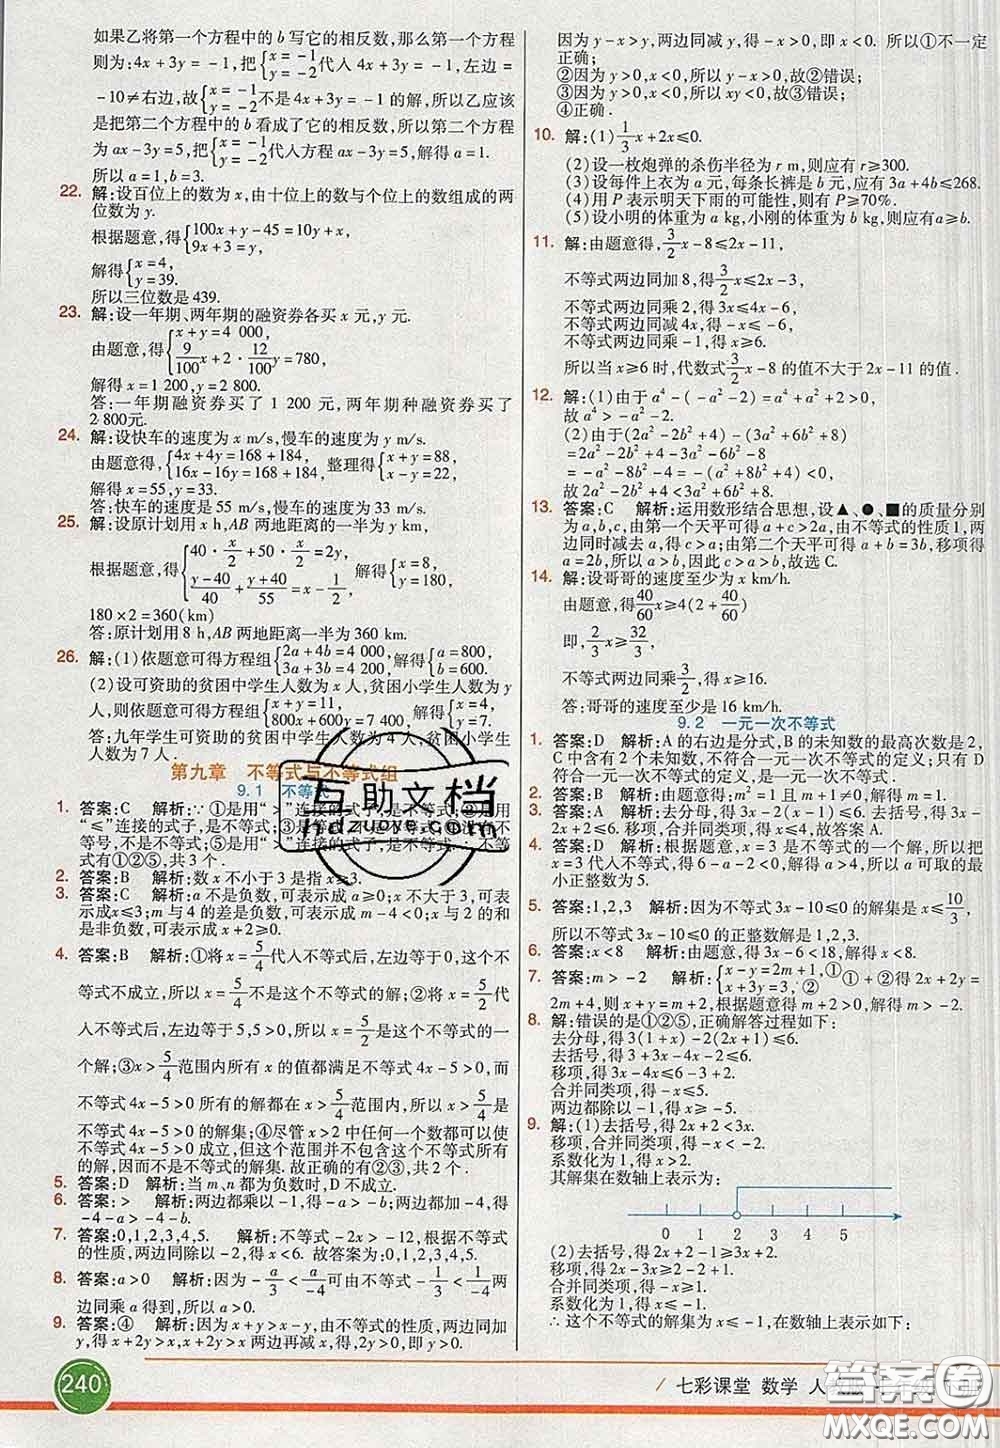 如果乙将第一个方程中的 b 写它的相反数,那么第一个方程
则为:4x+3y=-1,把{x=-1 y=-2代入4x+3y=-1,左边=
-10≠右边,故{x=-1 y=-2不是4x+3y=-1的解,所以乙应该
是把第二个方程中的 b 看成了它的相反数,所以第二个方程
为 ax-3y=5,把{x=-1 y=-2代入方程ax-3y=5,解得 a=1.
所以 a=1,b=3.
22. 解:设百位上的数为 x,由十位上的数与个位上的数组成的两
位数为 y.
根据题意,得{100x+y-45=10y+x, 9x+3=y.
解得{x=4, y=39.
所以三位数是 439.
23. 解:设一年期、两年期的融资券各买 x 元,y 元.
由题意,得{x+y=4 000, 9/100x+2·12/100y=780,
解得 x=1 200,y=2 800.
答:一年期融资券买了 1 200 元,两年期种融资券买了
2 800元.
24. 解:设快车的速度为 x m/s,慢车的速度为 y m/s.
由题意,得{4x+4y=168+184, 16x-16y=168+184, 整理得{x+y=88, x-y=22.
解得 x=55,y=33.
答:快车的速度是 55 m/s,慢车的速度是 33 m/s.
25. 解:设原计划用 x h,AB 两地距离的一半为 y km,
根据题意,得{40·x/2+50·x/2=2y, (y-40)/40+(y+40)/55=x-1/2 解得{x=8, y=180,
180×2=360(km)
答:原计划用 8 h,AB 两地距离一半为 360 km.
26. 解:(1)依题意可得方程组{2a+4b=4 000, 3a+3b=4 200, 解得{a=800, b=600.
(2)设可资助的贫困中学生人数为 x 人,贫困小学生人数为 y
人,依题意可得方程组{x+y=11, 800x+600y=7 400, 解得{x=4, y=7.
答:九年学生可资助的贫困中学生人数为 4 人,贫困小学生
人数为 7 人.
第九章 不等式与不等式组
9.1 不等式
1. 答案:C 解析:∵①是用“>”连接的式子,是不等式;②是用
“≤”连接的式子,是不等式;③是等式,不是不等式;④没有不
等号,不是不等式;⑤是用“>”连接的式子,是不等式.∴不等式
有①②⑤,共 3 个.
2. 答案:B 解析:数 x 不小于 3 是指 x≥3.
3. 答案:C 解析:a 不是负数,可表示成 a≥0;x 不大于 3,可表
示成x≤3;m 与 4 的差是负数,可表示成 m-4<0;x 与 2 的和
是非负数,可表示成 x+2≥0.
4. 答案:B 解析:①将 x=5/4代人不等式后,左边等于右边,
不等式不成立,所以 x=5/4不是不等式的解;②将 x=5/2代
人不等式后,左边等于 5,5>0,所以 x=5/2是这个不等式的
一个解;③x>5/4范围内所有的解都能使不等式 4x-5>0成立,而
不等式 4x-5>0 所有的解都在 x>5/4范围内,所以 x>5/4是
不等式4x-5>0的解集;④尽管 x>2 中任何一个数都可以使
不等式4x-5>0成立,但这个范围并不包含这个不等式所有
的解,故不是不等式的解集.故正确的有②③,共 2 个.
5. 答案:D 解析:当 m、n 都为负数时,D 不成立.
6. 答案:> 解析:两边都乘以-1,得-a>-b,两边都加-4,得
-4-a>-4-b.
7. 答案:0,1,2,3,4,5. 解析:不等式-2x>-12,根据不等式
的性质,两边同除以-2,得 x<6.故答案为:0,1,2,3,4,5.
8. 答案:a>0 解析:因为-a/3<a/4可由不等式-1/3<1/4两
边同乘 a 得到,所以 a>0.
9. 答案:④ 解析:因为x+y>x-y,由不等式的性质,两边同加
y,得 x+2y>x,即x+2y>x两边再减 x,得2y>0,即y>0;
因为 y-x>y,两边同减 y,得-x>0,即 x<0. 所以①不一定
正确;
②因为 y>0,x<0,所以 y-x>0,故②错误;
③因为 y>0,x<0,所以 xy<0,故③错误;
④正确.
10. 解:(1)1/3x+2x≤0.
(2)设一枚炮弹的杀伤半径为 r m,则应有 r≥300.
(3)设每件上衣为 a 元,每条长裤是 b 元,应有 3a+4b≤268.
(4)用 P 表示明天下雨的可能性,则有 P≥70%.
(5)设小明的体重为 a kg,小刚的体重为 b kg,则应有a≥b.
11. 解:由题意得,3/2x-8≤2x-11,
不等式两边同加 8,得3/2x≤2x-3,
不等式两边同乘 2,得 3x≤4x-6,
不等式两边同减 4x,得-x≤-6,
不等式两边同乘-1,得 x≥6.
所以当 x≥6 时,代数式3/2x-8 的值不大于 2x-11 的值.
12. 解:(1)由于 a⁴-(-a²-2)=a⁴+a²+2>0,
故 a⁴>-a²-2.
(2)由于(2a²-2b²+4)-(3a²+6b²+8)
=2a²-2b²+4-3a²-6b²-8
=-a²-8b²-4=-(a²+8b²+4)<0,
故 2a²-2b²+4<3a²+6b²+8.
13. 答案:C 解析:运用数形结合思想,设▲、●、■的质量分别
为a,b,c,由第一个天平可得 a+c>2a,由不等式的性质1,两
边同时减去 a,得 c>a;由第二个天平可得 a+b=3b,移项得
a=2b,所以 a>b,因此 c>a>b,故选 C.
14. 解:设哥哥的速度至少为 x km/h.
由题意,得40/60x≥4(2+40/60)
即,2/3x≥32/3,
不等式两边同乘3/2,得 x≥16.
答:哥哥的速度至少是 16 km/h.
9.2 一元一次不等式
1. 答案:D 解析:A 的右边是分式,B 的未知数的最高次数是 2,
C 中含有两个未知数,不符合一元一次不等式的定义,只有 D
符合一元一次不等式的定义,是一元一次不等式.
2. 答案:D 解析:由题意得:m²=1 且 m+1≠0,解得 m=1.
3. 答案:A 解析:去分母,得 3x-2(x-1)≤6.去括号,得 3x-
2x+2≤6.移项,合并同类项,得 x≤4,故答案 A.
4. 答案:D 解析:根据题意,x=3 是不等式的一个解,所以把
x=3 代人不等式,得 6-a-2<0,解得 a>4,所以 a 可取的最
小正整数为 5.
5. 答案:1,2,3 解析:因为不等式 3x-10≤0 的解集是 x≤10/3,
所以不等式 3x-10≤0 的正整数解是 1,2,3.
6. 答案:x<8 解析:由题意,得 3x-6<18,解得 x<8.
7. 答案:m>-2 解析:{x-y=2m+1,① x+3y=3,② ①+②得 2x+2y=
2m+4,则 x+y=m+2,根据题意得 m+2>0,解得 m>-2.
8. 解:错误的是①②⑤,正确解答过程如下:
去分母,得 3(1+x)-2(2x+1)≤6.
去括号,得 3+3x-4x-2≤6.
移项,得 3x-4x≤6-3+2.
合并同类项,得-x≤5.
两边都除以-1,得 x≥-5.
9. 解:(1)去括号,得 2x+2<3x.
移项,合并同类项,得-x<-2.
系数化为 1,得 x>2.
其解集在数轴上表示为:
0 1 2 3 4 5
(2)去括号,得 2x+2-1≥3x+2.
移项,得 2x-3x≥2-2+1.
合并同类项,得-x≥1.
系数化为 1,得 x≤-1.
∴这个不等式的解集为 x≤-1,在数轴上表示如下:
240
七彩课堂 数学 人
互助文档
hdzuoye.com
答案圈
MXQE.COM